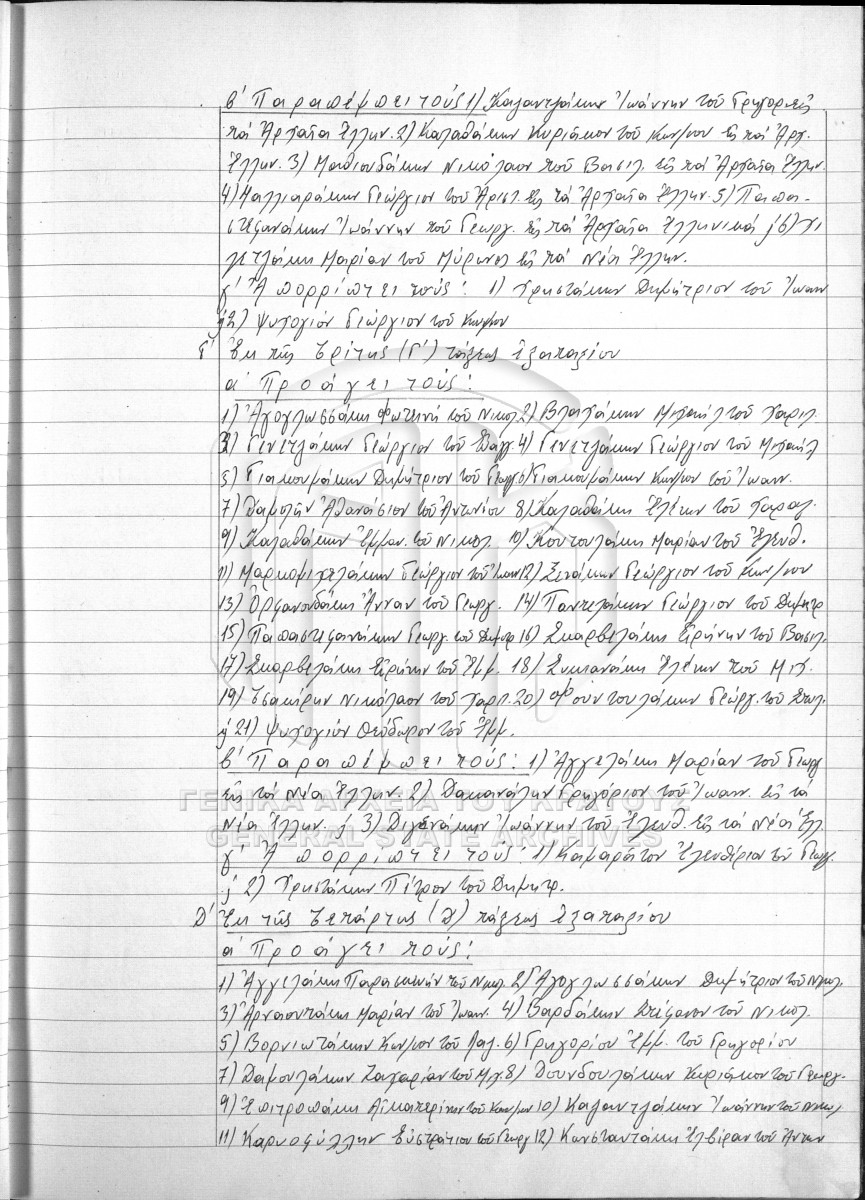 β' Παραπέμπει τούς 1) Καλαντζάκην Ἰωάννην τοῦ Γρηγορ. εἰς
τά Ἀρχαῖα Ἑλλην. 2) Καλαθάκην Κυριάκον τοῦ Κων/νου εἰς τά Ἀρχ.
Ἑλλην. 3) Μαθιουδάκην Νικόλαον τοῦ Βασιλ. εἰς τά Ἀρχαῖα Ἑλλην.
4) Μαλλιαράκην Γεώργιον τοῦ Ἀριστ. εἰς τά Ἀρχαῖα Ἑλλην. 5) Παπα-
στεφανάκην Ἰωάννην τοῦ Γεωργ. εἰς τά Ἀρχαῖα Ἑλληνικά
Μαρίαν τοῦ Μύρωνος εἰς τά Νέα Ἑλλην.
γ' Ἀπορρίπτει τούς: 1) Χρηστάκην Δημήτριον τοῦ Ἰωαν
2) Ψυχογιόν Γεώργιον τοῦ Κων/νου
Γ' Ἐκ τῆς Τρίτης (Γ') τάξεως ἑξαταξίου
α' Προάγει τούς:
1) Ἀγογλωσσάκη Φωτεινή τοῦ Νικολ 2) Βλαχάκην Μιχαήλ τοῦ Χαριλ.
3) Γενετζάκην Γεώργιον τοῦ Εὐαγγ. 4) Γενετζάκην Γεώργιον τοῦ Μιχαήλ
5) Γιακουμάκην Δημήτριον τοῦ Γεωργ 6) Γιακουμάκην Κων/νον τοῦ Ἰωαν.
7) Δαμολῆν Ἀθανάσιον τοῦ Ἀντωνίου 8) Καλαθάκη Ἑλένην τοῦ Χαραλ.
9) Καλαθάκην Ἐμμαν. τοῦ Νικολ. 10) Κουτουλάκη Μαρίαν τοῦ Ἐλευθ.
11) Μαρκομιχελάκην Γεώργιον τοῦ Ἰωαν 12) Ξενάκην Γεώργιον τοῦ Κων/νου
13) Ὀρφανουδάκη Ἄνναν τοῦ Γεωργ. 14) Παντελάκην Γεώργιον τοῦ Δημητρ
15) Παπαστεφανάκην Γεωργ. τοῦ Δημητρ 16) Σκαρβελάκη Εἰρήνην τοῦ Βασιλ.
17) Σκαρβελάκη Εἰρήνην τοῦ Ἐμμ. 18) Συκιανάκη Ἑλένην τοῦ Μιχ.
19) Τσακίρην Νικόλαον τοῦ Χαρ. 20) Φουντουλάκην Γεώργ. τοῦ Στυλ.
21) Ψυχογιόν Θεόδωρον τοῦ Ἐμμ.
β' Παραπέμπει τούς: 1) Ἀγγελάκη Μαρίαν τοῦ Γεωργ
εἰς τά Νέα Ἑλλην. 2) Δακανάλην Γρηγόριον τοῦ Ἰωαν. εἰς τά
Νέα Ἑλλην. 3) Διγενάκην Ἰωάννην τοῦ Ἐλευθ. εἰς τά Νέα Ἑλλ.
γ' Ἀπορρίπτει τούς: 1) Καμαράτον Ἐλευθέριον τοῦ Γεωργ.
2) Χρηστάκην Πέτρον τοῦ Δημητρ.
Δ' Ἐκ τῆς Τετάρτης (Δ) τάξεως ἑξαταξίου
α' Προάγει τούς:
1) Ἀγγελάκη Παρασκευήν τοῦ Νικολ 2) Ἀγογλωσσάκην Δημήτριον τοῦ Νικολ.
3) Ἀρναουτάκη Μαρίαν τοῦ Ἰωαν. 4) Βαρδάκην Στέφανον τοῦ Νικολ.
5) Βορνιωτάκην Κων/νον τοῦ 6) Γρηγορίου Ἐμμ. τοῦ Γρηγορίου
7) Δαμουλάκην Ζαχαρίαν τοῦ Μιχ 8) Δουνδουλάκην Κυριάκον τοῦ Γεωργ.
9) Ἐπιτροπάκη Αἰκατερίνην τοῦ Κων/νου 10) Καλαντζάκην Ἰωάννην τοῦ Νικολ
11) Καρυοφύλλην Εὐστράτιον τοῦ Γεωργ 12) Κωνσταντάκη Ἐλβίραν τοῦ Ἀντων
ΓΕΝΙΚΑ ΑΡΧΕΙΑ ΤΟΥ ΚΡΑΤΟΥΣ
GENERAL STATE ARCHIVES